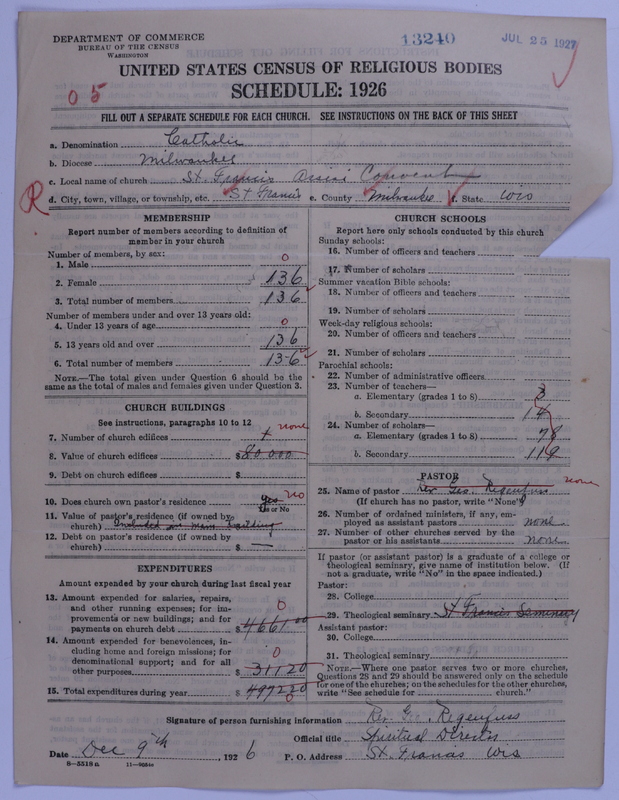 DEPARTMENT OF COMMERCE
BUREAU OF THE CENSUS
WASHINGTON
13240
JUL 25 1927
UNITED STATES CENSUS OF RELIGIOUS BODIES
SCHEDULE: 1926
0 5
FILL OUT A SEPARATE SCHEDULE FOR EACH CHURCH. SEE INSTRUCTIONS ON THE BACK OF THIS SHEET
a. Denomination Catholic
b. Diocese Milwaukee
c. Local name of church St. Francis Assisi Convent
R d. City, town, village, or township, etc. St Francis e. County Milwaukee f. State Wis
MEMBERSHIP
Report number of members according to definition of
member in your church
Number of members, by sex:
1. Male 0
2. Female 136
3. Total number of members 136
Number of members under and over 13 years old:
4. Under 13 years of age 0
5. 13 years old and over 136
6. Total number of members 136
NOTE.—The total given under Question 6 should be the
same as the total of males and females given under Question 3.
CHURCH BUILDINGS
See instructions, paragraphs 10 to 12
none
7. Number of church edifices
8. Value of church edifices $80,000
9. Debt on church edifices $
10. Does church own pastor's residence yes no
Yes or No
11. Value of pastor's residence (if owned by
church) Included in main building
12. Debt on pastor's residence (if owned by
church) $ —
EXPENDITURES
Amount expended by your church during last fiscal year
13. Amount expended for salaries, repairs,
and other running expenses; for im-
provements or new buildings; and for
payments on church debt $4661 00 0
14. Amount expended for benevolences, in-
cluding home and foreign missions; for
denominational support; and for all
other purposes $311 20 0
15. Total expenditures during year $4972 20 0
CHURCH SCHOOLS
Report here only schools conducted by this church
Sunday schools:
16. Number of officers and teachers
17. Number of scholars
Summer vacation Bible schools:
18. Number of officers and teachers
19. Number of scholars
Week-day religious schools:
20. Number of officers and teachers
21. Number of scholars
Parochial schools:
22. Number of administrative officers
23. Number of teachers—
a. Elementary (grades 1 to 8) 3
b. Secondary 14
24. Number of scholars—
a. Elementary (grades 1 to 8) 78
b. Secondary 112
PASTOR
25. Name of pastor Rev. Geo. Regenfuss none
(If church has no pastor, write "None")
26. Number of ordained ministers, if any, em-
ployed as assistant pastors none
27. Number of other churches served by the
pastor or his assistants none
If pastor (or assistant pastor) is a graduate of a college or
theological seminary, give name of institution below. (If
not a graduate, write "No" in the space indicated.)
Pastor:
28. College
29. Theological seminary St Francis Seminary
Assistant pastor:
30. College
31. Theological seminary
NOTE.—Where one pastor serves two or more churches,
Questions 28 and 29 should be answered only on the schedule
for one of the churches; on the schedules for the other churches,
write "See schedule for church."
Signature of person furnishing information Rev. Geo. Regenfuss
Official title Spiritual Director
Date Dec 9th, 1926 P. O. Address St. Francis Wis
8—5518 a